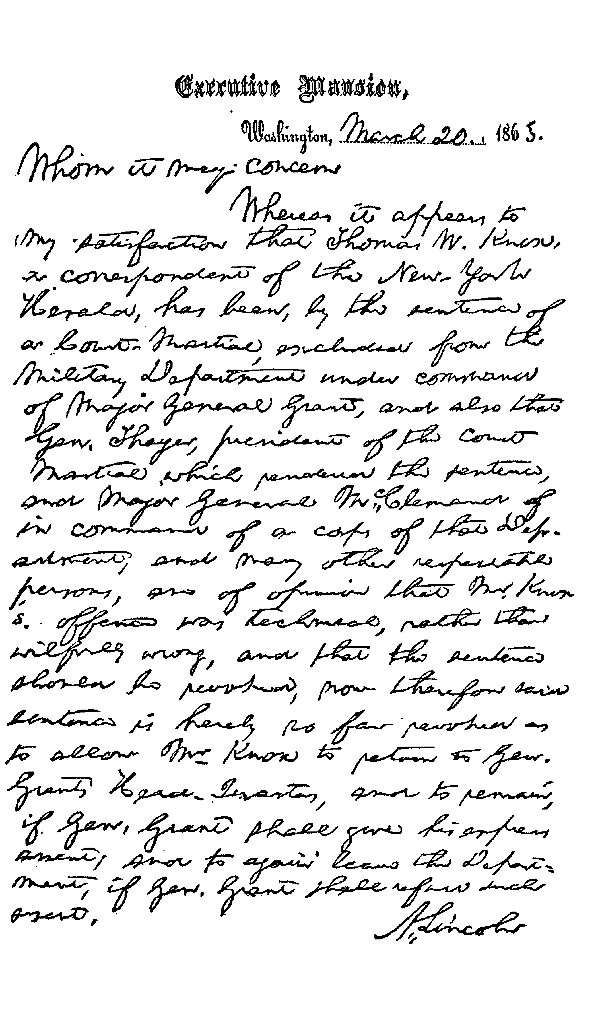 Executive Mansion,
Washington, March 20., 1863.
Whom it may concern
Whereas it appears to
my satisfaction that Thomas W. Knox,
a correspondent of the New-York
Herald, has been, by the sentence of
a Court-Martial, excluded from the
Military Department under command
of Major General Grant, and also that
Gen. Thayer, president of the Court
Martial which rendered the sentence,
and Major General McClernand
in command of a corps of that Dep-
artment, and many other respectable
persons, are of opinion that Mr Knox
's. offence was technical, rather than
wilfully wrong, and that the sentence
should be revoked, now therefore said
sentence is hereby so far revoked as
to allow Mr Knox to return to Gen.
Grant's Head-Quarters, and to remain,
if Gen. Grant shall give his express
assent; and to again leave the Depart-
ment, if Gen. Grant shall refuse such
assent.
A. Lincoln